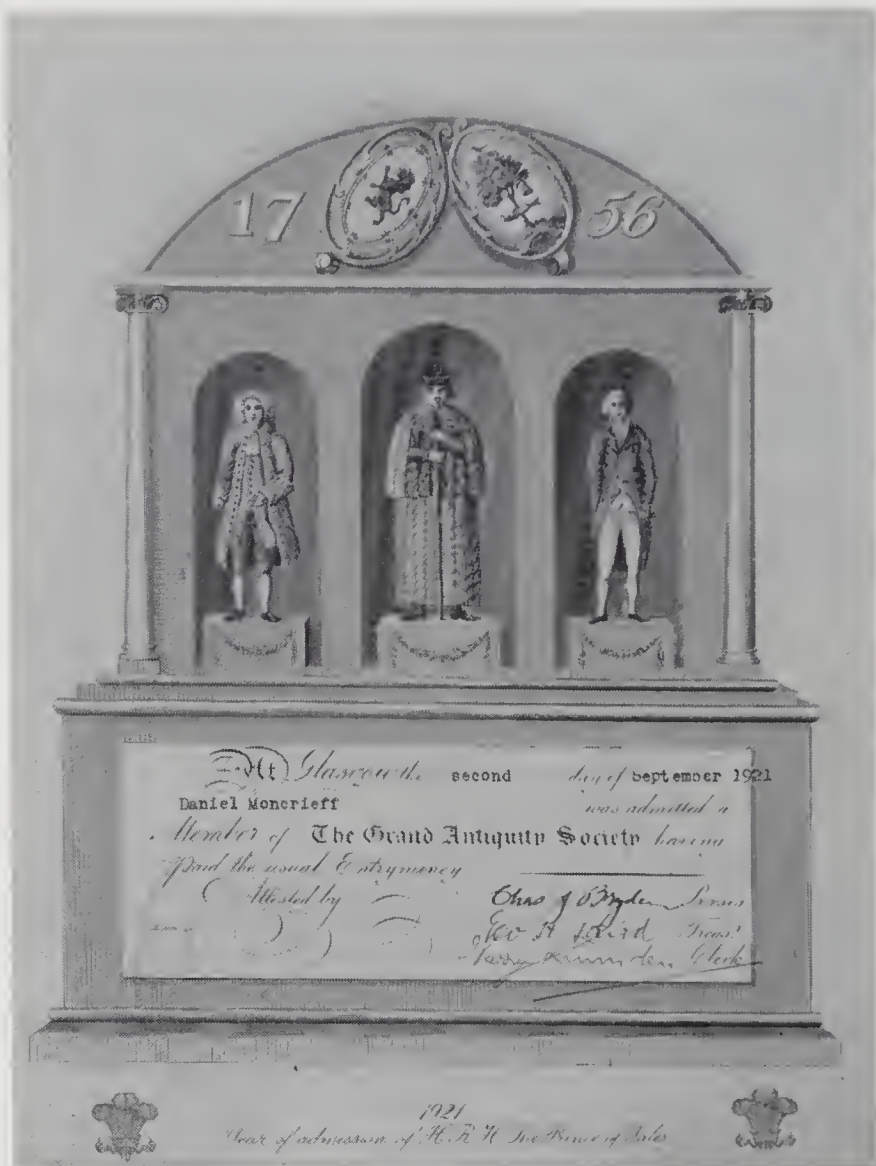 17 56
At Glasgow the second day of September 1921
Daniel Moncrieff was admitted a
Member of The Grand Antiquity Society having
Paid the usual Entrymoney
Attested by Chas J Bryden Preses
Geo A Laird Treasr
Clerk
1921
Year of admission of H.R.H. The Prince of Wales